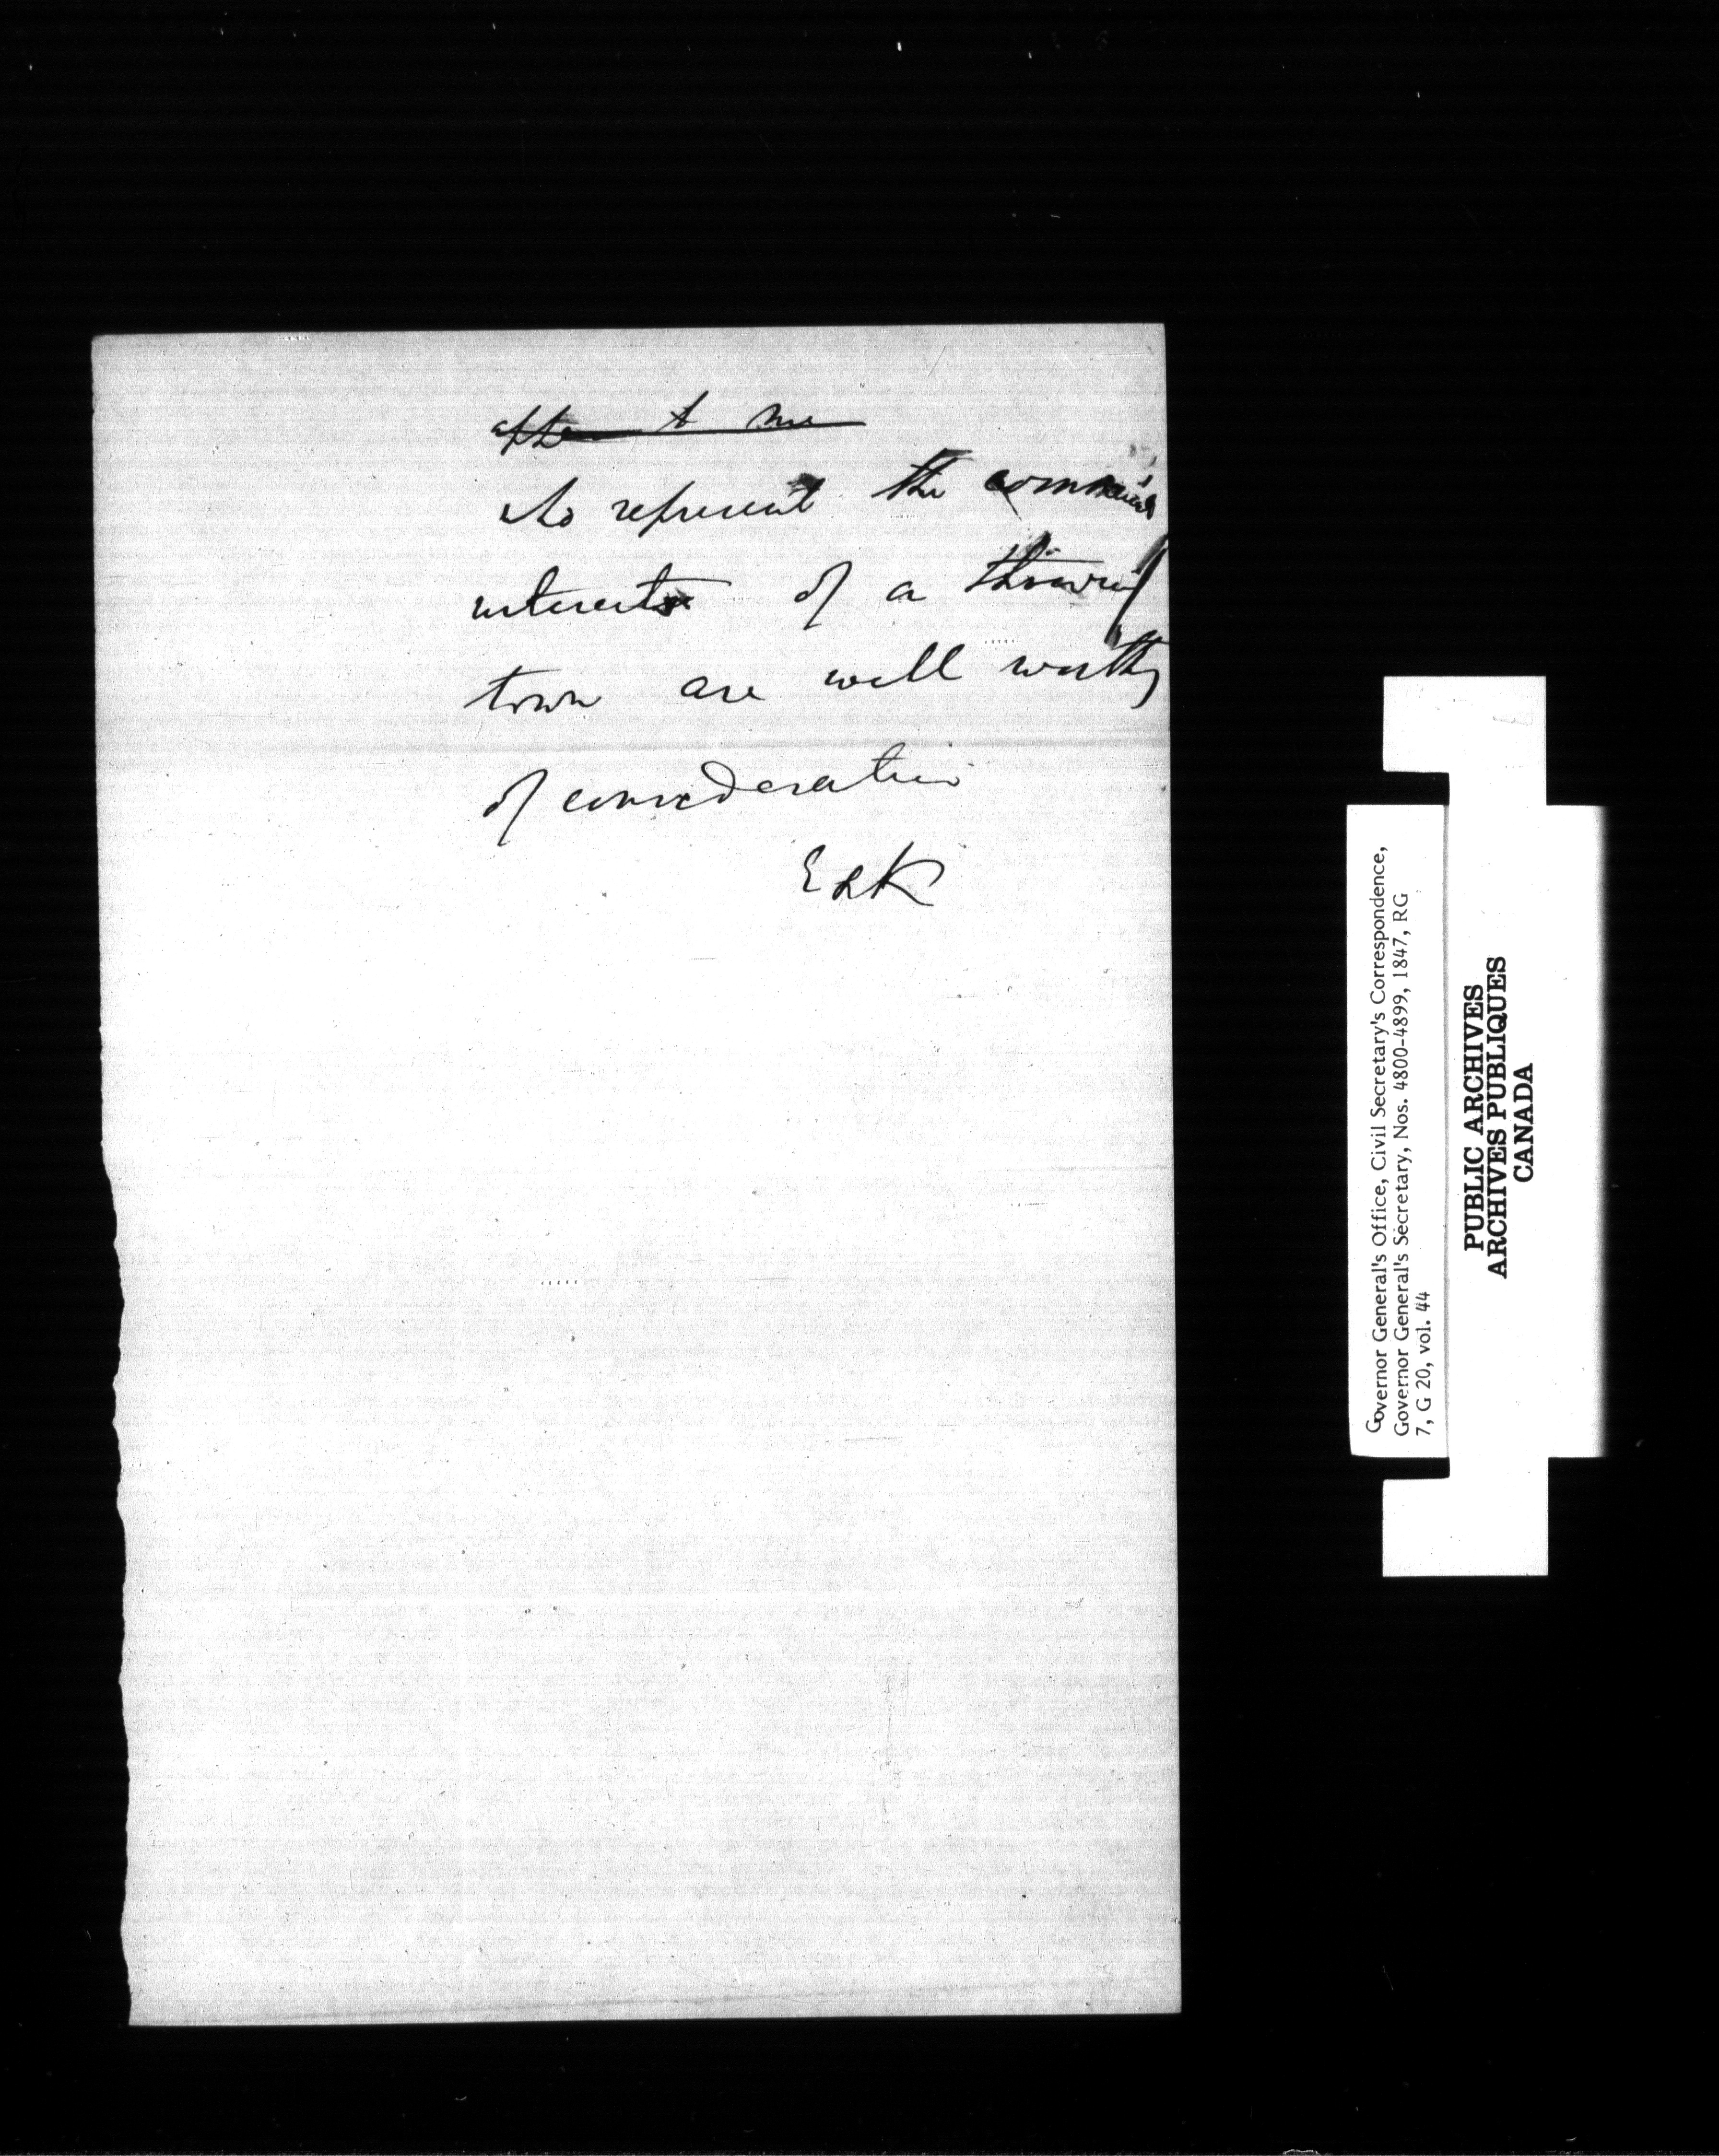 after to me
who represent the commercial
interests of a thriving
town are well worthy
of consideration
E&K
Governor General's Office, Civil Secretary's Correspondence,
Governor General's Secretary, Nos. 4800-4899, 1847, RG
7, G 20, vol. 44
PUBLIC ARCHIVES
ARCHIVES PUBLIQUES
CANADA